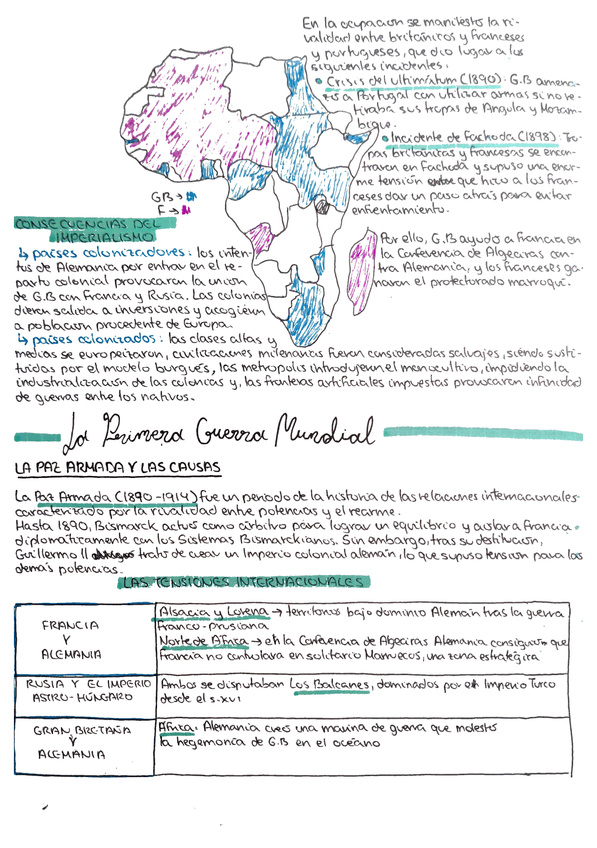 En la ocupación se manifestó la ri-
validad entre británicos y franceses
y portugueses, que dio lugar a los
siguientes incidentes:
• Crisis del ultimátum (1890): G.B amena-
zó a Portugal con utilizar armas si no re-
tiraba sus tropas de Angola y Mozam-
bique.
• Incidente de Fachoda (1898): Tro-
pas británicas y francesas se encon-
traron en Fachoda y supuso una enor-
me tensión que hizo a los fran-
ceses dar un paso atrás para evitar
enfrentamiento.
GB →
F →
Por ello, G.B ayudó a Francia en
la Conferencia de Algeciras con-
tra Alemania, y los franceses ga-
naron el protectorado marroquí.
CONSECUENCIAS DEL
IMPERIALISMO
↳ países colonizadores: los inten-
tos de Alemania por entrar en el re-
parto colonial provocaron la unión
de G.B con Francia y Rusia. Las colonias
dieron salida a inversiones y acogieron
a población procedente de Europa.
↳ países colonizados: las clases altas y
medias se europeizaron, civilizaciones milenarias fueron consideradas salvajes, siendo susti-
tuidas por el modelo burgués, las metrópolis introdujeron el monocultivo, impidiendo la
industrialización de las colonias y, las fronteras artificiales impuestas provocaron infinidad
de guerras entre los nativos.
La Primera Guerra Mundial
LA PAZ ARMADA Y LAS CAUSAS
La Paz Armada (1890-1914) fue un periodo de la historia de las relaciones internacionales
caracterizado por la rivalidad entre potencias y el rearme.
Hasta 1890, Bismarck actuó como árbitro para lograr un equilibrio y aislar a Francia
diplomáticamente con los Sistemas Bismarckianos. Sin embargo, tras su destitución,
Guillermo II trató de crear un Imperio colonial alemán, lo que supuso tensión para las
demás potencias.
LAS TENSIONES INTERNACIONALES
FRANCIA
Y
ALEMANIA
Alsacia y Lorena → territorios bajo dominio Alemán tras la guerra
Franco-prusiana
Norte de África → en la Conferencia de Algeciras Alemania consiguió que
Francia no controlara en solitario Marruecos, una zona estratégica
RUSIA Y EL IMPERIO
ASTRO-HÚNGARO
Ambos se disputaban Los Balcanes, dominados por el Imperio Turco
desde el s.XVI
GRAN BRETAÑA
Y
ALEMANIA
África: Alemania creó una marina de guerra que molestó
la hegemonía de G.B en el océano